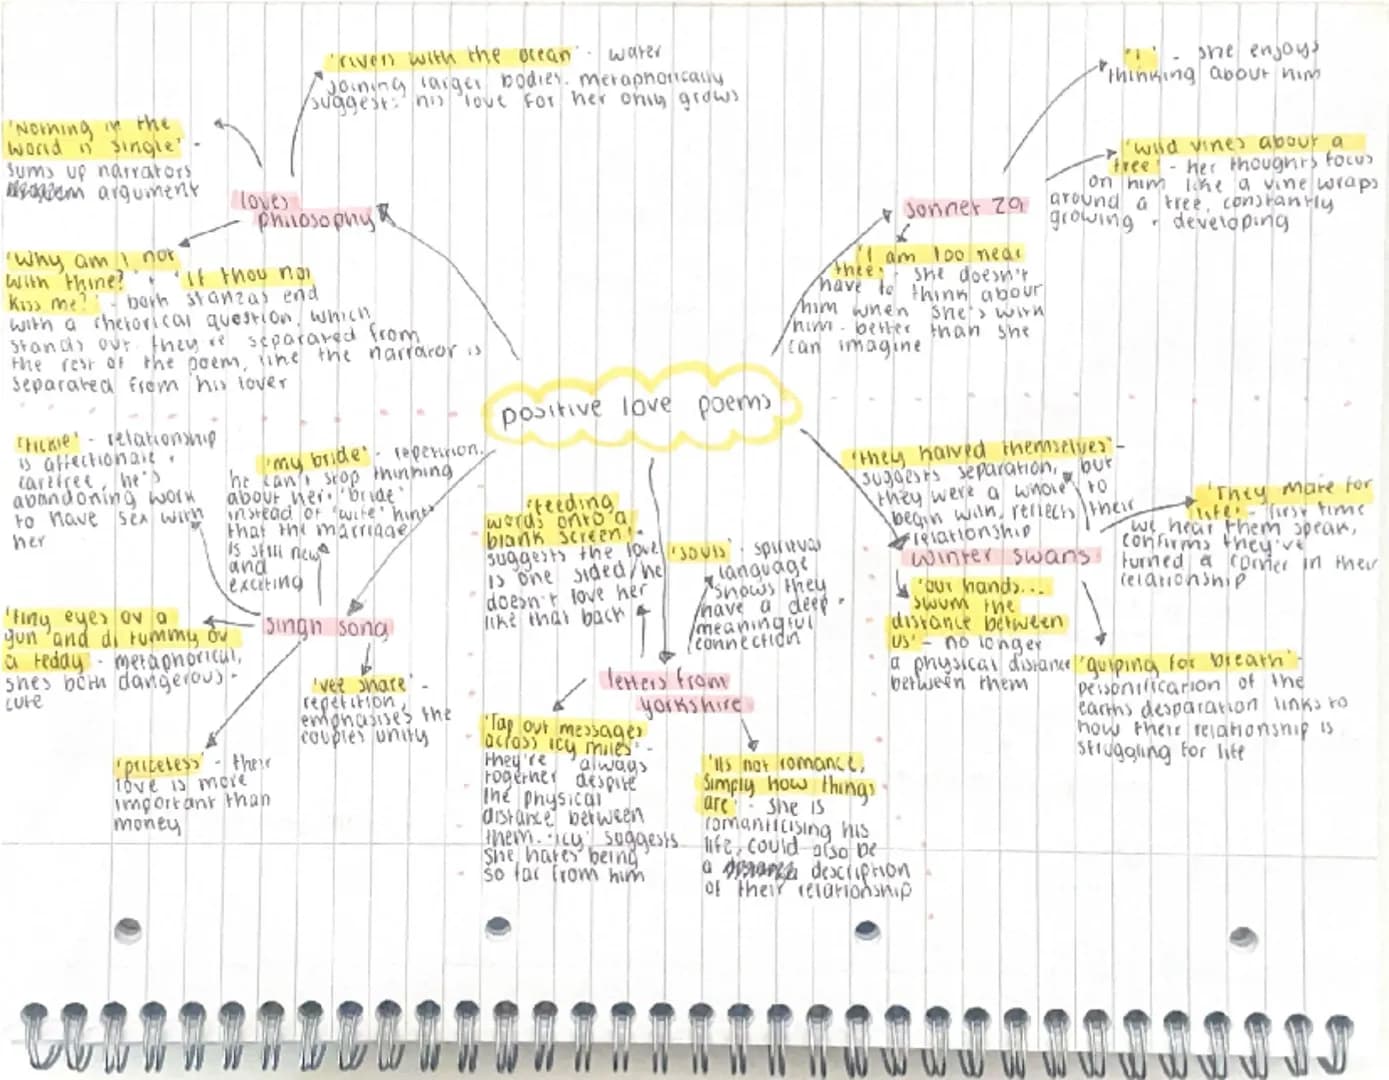 positive love poems
loves
philosophy
'rivers with the ocean' - water
joining larger bodies. metaphorically
suggests his love for her only grows
'Nothing in the
world is single' -
sums up narrators
argument
'Why am I not
with thine?' + 'If thou not
kiss me?' - both stanzas end
with a rhetorical question, which
stands out. they're separated from
the rest of the poem, like the narrator is
separated from his lover
sonnet 29
'I' - she enjoys
thinking about him
'wild vines about a
tree' - her thoughts focus
on him like a vine wraps
around a tree, constantly
growing + developing
'I am too near
thee' - she doesn't
have to think about
him when she's with
him - better than she
can imagine
singh song
'tickle' - relationship
is affectionate +
carefree, he's
abandoning work
to have sex with
her
'my bride' - repetition.
he can't stop thinking
about her. 'bride'
instead of 'wife' hints
that the marriage
is still new
and
exciting
'tiny eyes ov a
gun' and 'di tummy ov
a teddy' - metaphorical,
shes both dangerous +
cute
'vee share' -
repetition,
emphasises the
couples unity
'priceless' - their
love is more
important than
money
letters from
yorkshire
'feeding
words onto a
blank screen' -
suggests the love
is one sided/he
doesn't love her
like that back
'souls' - spiritual
language
shows they
have a deep +
meaningful
connection
'Tap out messages
across icy miles' -
they're always
together despite
the physical
distance between
them. 'icy' suggests
she hates being
so far from him
'its not romance,
simply how things
are' - she is
romanticising his
life, could also be
a description
of their relationship
winter swans
'they halved themselves' -
suggests separation, but
they were a whole to
begin with, reflects their
relationship
'They mate for
life' - first time
we hear them speak,
confirms they've
turned a corner in their
relationship
'our hands...
swum the
distance between
us' - no longer
a physical distance
between them
'gulping for breath' -
personification of the
earths desparation links to
how their relationship is
struggling for life